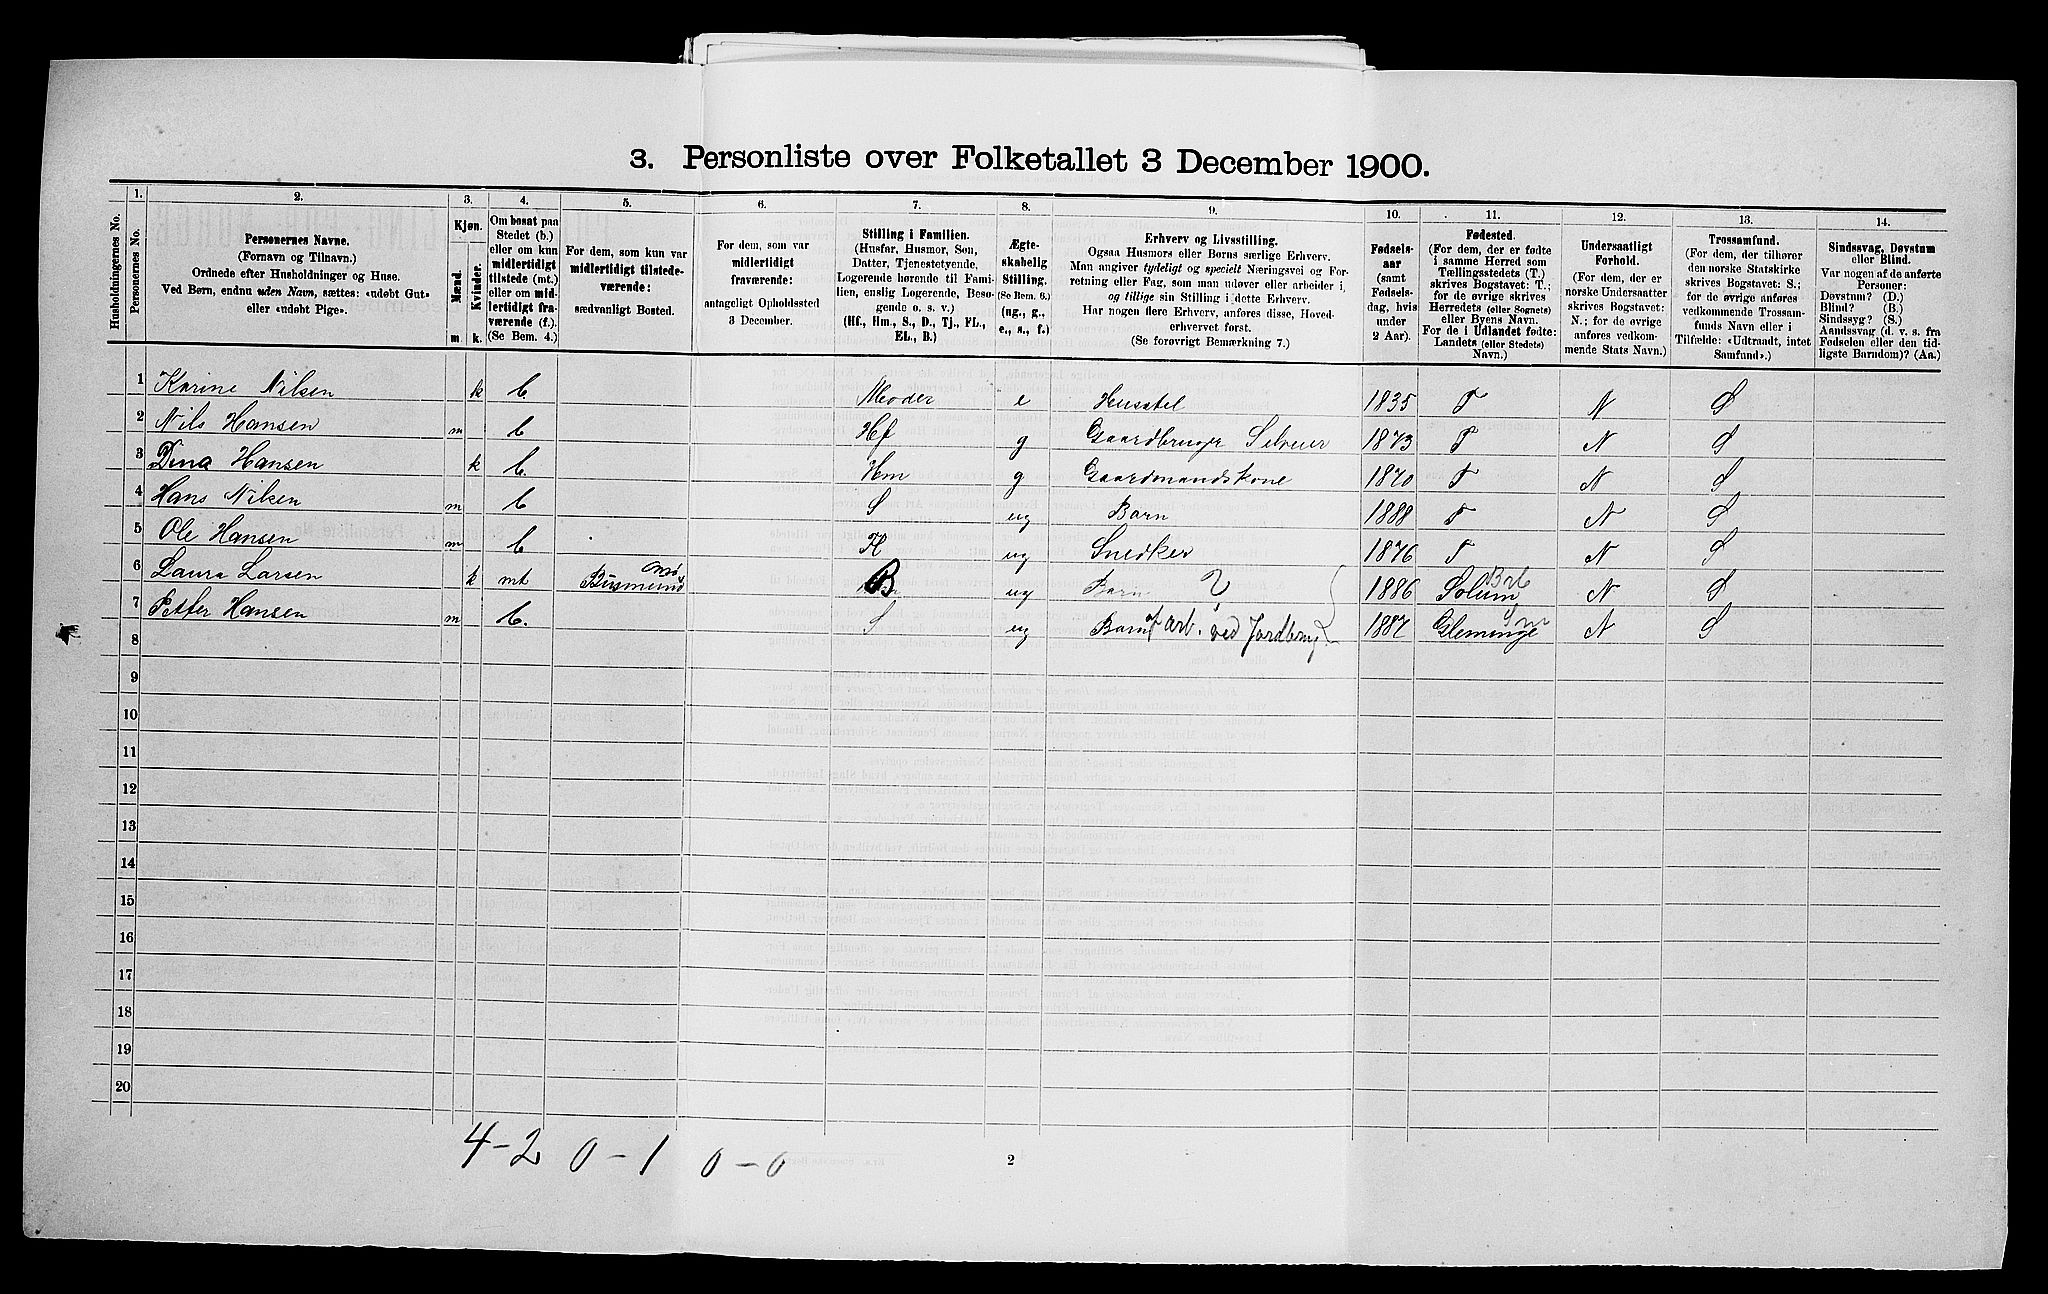 3. Personliste over Folketallet 3 December 1900.
Husholdningernes No.
1. Personernes No.
2. Personernes Navne.
(Fornavn og Tilnavn.)
Ordnede efter Husholdninger og Huse.
Ved Børn, endnu uden Navn, sættes: «udøbt Gut»
eller «udøbt Pige».
3. Kjøn.
Mænd. Kvinder.
m. k.
4. Om bosat paa
Stedet (b.)
eller om kun
midlertidigt
tilstede (mt.)
eller om mid-
lertidigt fra-
værende (f.).
(Se Bem. 4.)
5. For dem, som kun var
midlertidigt tilstede-
værende:
sædvanligt Bosted.
6. For dem, som var
midlertidigt
fraværende:
antageligt Opholdssted
3 December.
7. Stilling i Familien.
(Husfar, Husmor, Søn,
Datter, Tjenestetyende,
Logerende hørende til Fami-
lien, enslig Logerende, Besø-
gende o. s. v.)
(Hf., Hm., S., D., Tj., FL.,
EL., B.)
8. Ægte-
skabelig
Stilling.
(Se Bem. 6.)
(ug., g.,
e., s., f.)
9. Erhverv og Livsstilling.
Ogsaa Husmors eller Børns særlige Erhverv.
Man angiver tydeligt og specielt Næringsvei og For-
retning eller Fag, som man udøver eller arbeider i,
og tillige sin Stilling i dette Erhverv.
Har nogen flere Erhverv, anføres disse, Hoved-
erhvervet først.
(Se forøvrigt Bemærkning 7.)
10. Fødsels-
aar
(samt
Fødsels-
dag, hvis
under
2 Aar).
11. Fødested.
(For dem, der er fødte
i samme Herred som
Tællingsstedets (T.)
skrives Bogstavet: T.;
for de øvrige skrives
Herredets (eller Sognets)
eller Byens Navn.
For de i Udlandet fødte:
Landets (eller Stedets)
Navn.)
12. Undersaatligt
Forhold.
(For dem, der er
norske Undersaatter
skrives Bogstavet:
N.; for de øvrige
anføres vedkom-
mende Stats Navn.)
13. Trossamfund.
(For dem, der tilhører
den norske Statskirke
skrives Bogstavet: S.;
for de øvrige anføres
vedkommende Trossam-
funds Navn eller i
Tilfælde: «Udtraadt, intet
Samfund».)
14. Sindssvag, Døvstum
eller Blind.
Var nogen af de anførte
Personer:
Døvstum? (D.)
Blind? (B.)
Sindssyg? (S.)
Aandssvag (d. v. s. fra
Fødselen eller den tid-
ligste Barndom)? (Aa.)
1 Karine Nilsen k b. Moder e Husstel 1835 T N S
2 Nils Hansen m b Hf g Gaardbruger Selveier 1873 T N S
3 Dina Hansen k b. Hm g Gaardmandskone 1870 T N S
4 Hans Nilsen m b S ug Barn 1888 T N S
5 Ole Hansen m b ug Snedker 1876 T N S
6 Laura Larsen k mt B ug Barn 1886 Solum Brb N S
7 Petter Hansen m b. S ug Barn arb. ved Jordbrug 1887 Gleminge Sm N S
8
9
10
11
12
13
14
15
16
17
18
19
20
4-2 0-1 0-0
2